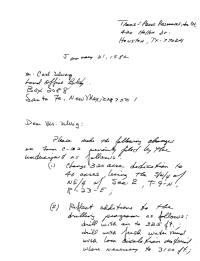 Trans-Pecos Resources, Inc.
Houston, TX. 77024
January 21, 1982
Mr. Carl Ulvog
Land Office Bldg.
Box 2088
Santa Fe, New Mexico 87501
Dear Mr. Ulvog:
Please make the following changes
on Form C-101 previously filed by the
undersigned as follows:
(1) Change acreage dedication to
40 acres being the
NE/4 of Sec 2, T-9-N
(2) Reflect additions to the
drilling program as follows:
drill with air to 325 ft.
drill with fresh water mud
with lost circulation material
where necessary to 3100 ft.